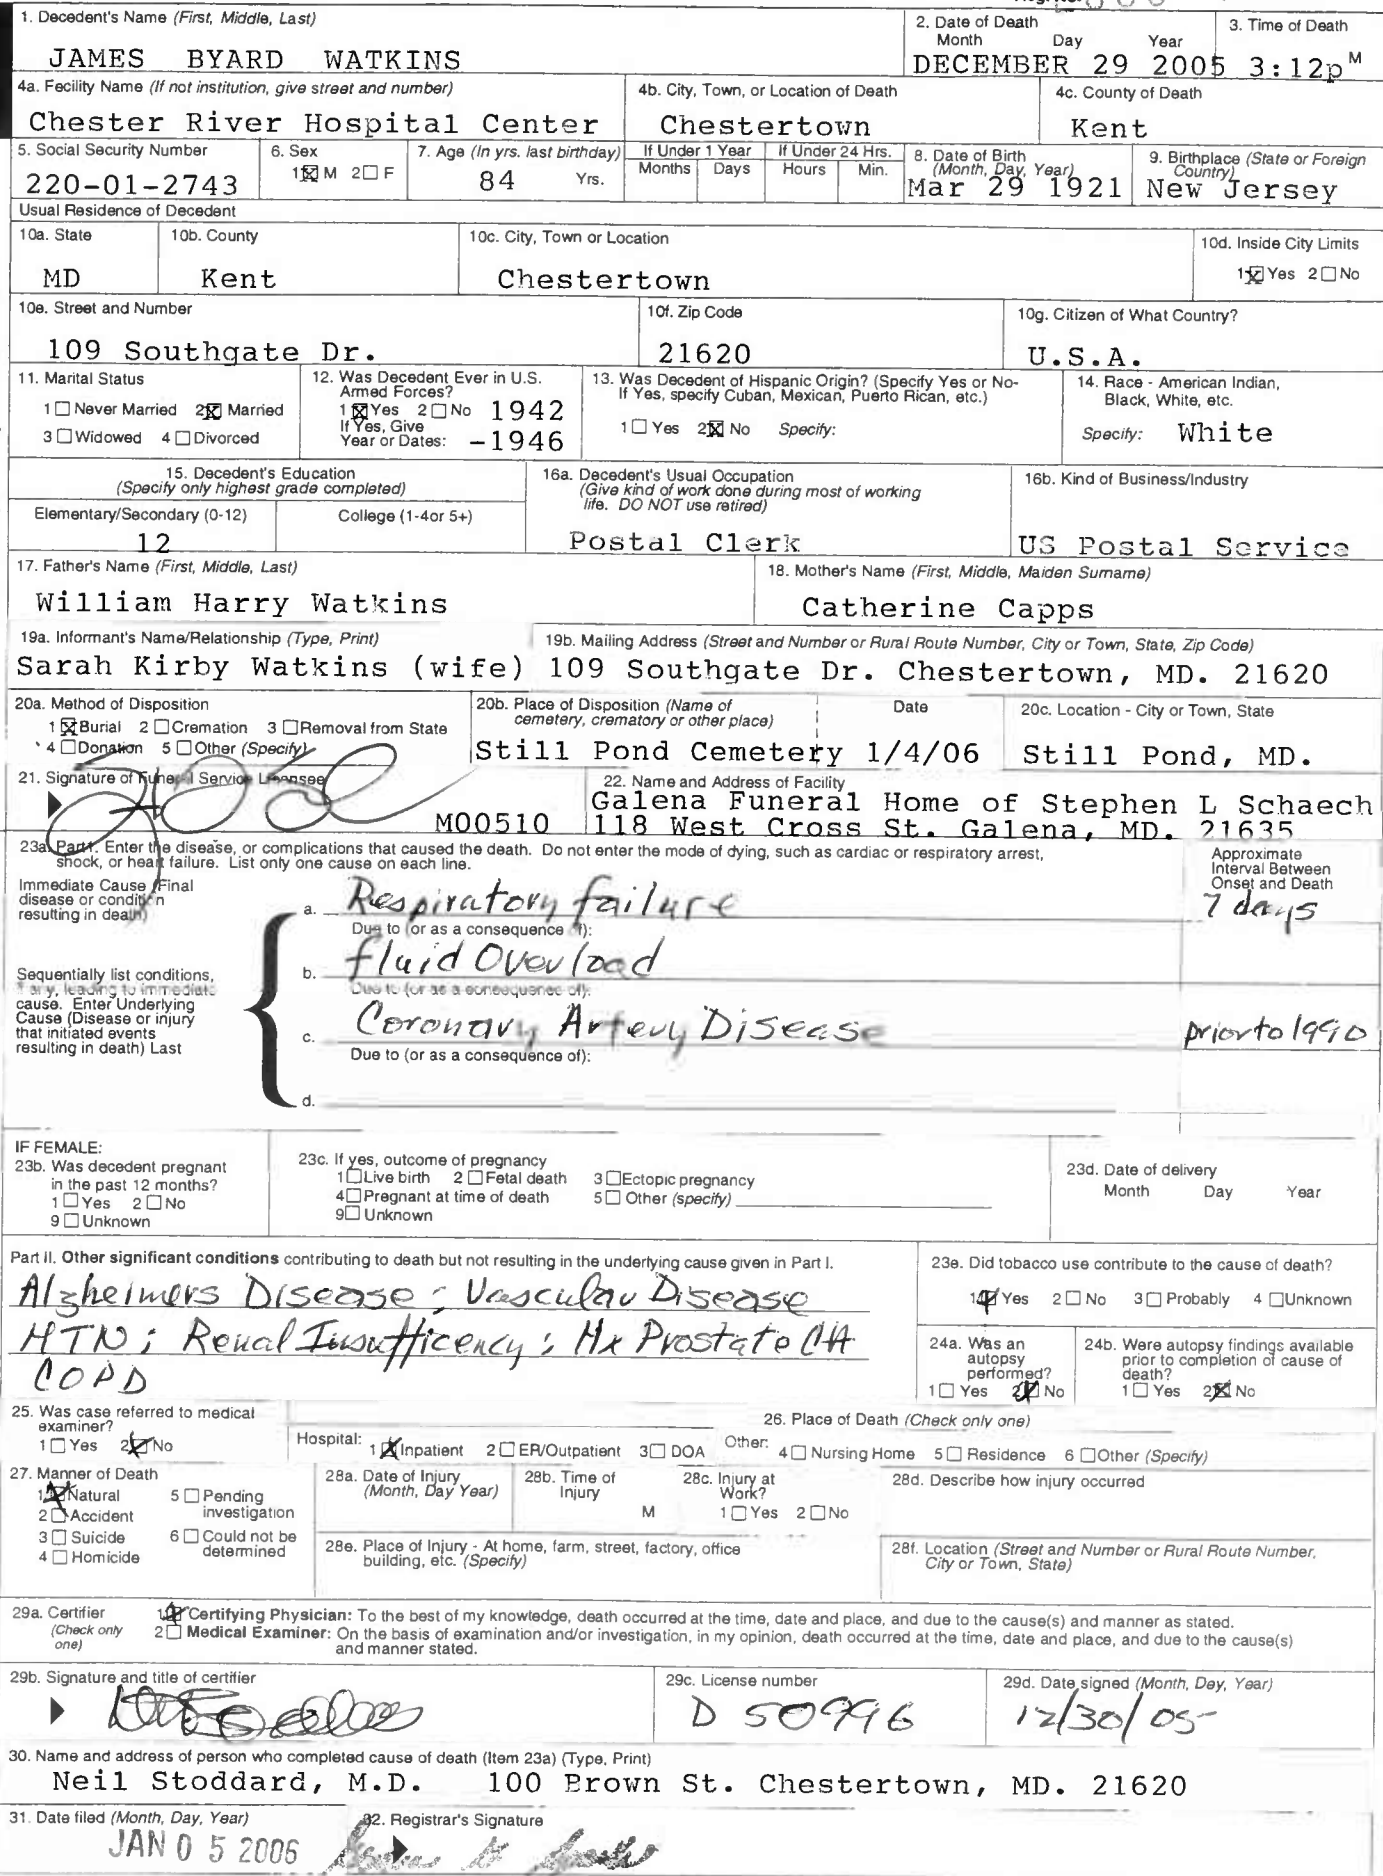 1. Decedent's Name (First, Middle, Last)
JAMES BYARD WATKINS
2. Date of Death
Month Day Year
DECEMBER 29 2005
3. Time of Death
3:12p M
4a. Facility Name (If not institution, give street and number)
Chester River Hospital Center
4b. City, Town, or Location of Death
Chestertown
4c. County of Death
Kent
5. Social Security Number
220-01-2743
6. Sex
1☒ M 2☐ F
7. Age (In yrs. last birthday)
84 Yrs.
If Under 1 Year
Months Days
If Under 24 Hrs.
Hours Min.
8. Date of Birth
(Month, Day, Year)
Mar 29 1921
9. Birthplace (State or Foreign
Country)
New Jersey
Usual Residence of Decedent
10a. State
MD
10b. County
Kent
10c. City, Town or Location
Chestertown
10d. Inside City Limits
1☒ Yes 2☐ No
10e. Street and Number
109 Southgate Dr.
10f. Zip Code
21620
10g. Citizen of What Country?
U.S.A.
11. Marital Status
1☐ Never Married 2☒ Married
3☐ Widowed 4☐ Divorced
12. Was Decedent Ever in U.S.
Armed Forces?
1☒ Yes 2☐ No 1942
If Yes, Give
Year or Dates: -1946
13. Was Decedent of Hispanic Origin? (Specify Yes or No-
If Yes, specify Cuban, Mexican, Puerto Rican, etc.)
1☐ Yes 2☒ No Specify:
14. Race - American Indian,
Black, White, etc.
Specify: White
15. Decedent's Education
(Specify only highest grade completed)
Elementary/Secondary (0-12)
12
College (1-4or 5+)
16a. Decedent's Usual Occupation
(Give kind of work done during most of working
life. DO NOT use retired)
Postal Clerk
16b. Kind of Business/Industry
US Postal Service
17. Father's Name (First, Middle, Last)
William Harry Watkins
18. Mother's Name (First, Middle, Maiden Surname)
Catherine Capps
19a. Informant's Name/Relationship (Type, Print)
Sarah Kirby Watkins (wife)
19b. Mailing Address (Street and Number or Rural Route Number, City or Town, State, Zip Code)
109 Southgate Dr. Chestertown, MD. 21620
20a. Method of Disposition
1☒ Burial 2☐ Cremation 3☐ Removal from State
4☐ Donation 5☐ Other (Specify)
20b. Place of Disposition (Name of
cemetery, crematory or other place)
Date
Still Pond Cemetery 1/4/06
20c. Location - City or Town, State
Still Pond, MD.
21. Signature of Funeral Service Licensee
M00510
22. Name and Address of Facility
Galena Funeral Home of Stephen L Schaech
118 West Cross St. Galena, MD. 21635
23a. Part I. Enter the disease, or complications that caused the death. Do not enter the mode of dying, such as cardiac or respiratory arrest,
shock, or heart failure. List only one cause on each line.
Approximate
Interval Between
Onset and Death
Immediate Cause (Final
disease or condition
resulting in death)
a. Respiratory failure
7 days
Due to (or as a consequence of):
b. fluid Overload
Due to (or as a consequence of):
Sequentially list conditions,
if any, leading to immediate
cause. Enter Underlying
Cause (Disease or injury
that initiated events
resulting in death) Last
c. Coronary Artery Disease
prior to 1990
Due to (or as a consequence of):
d.
IF FEMALE:
23b. Was decedent pregnant
in the past 12 months?
1☐ Yes 2☐ No
9☐ Unknown
23c. If yes, outcome of pregnancy
1☐ Live birth 2☐ Fetal death 3☐ Ectopic pregnancy
4☐ Pregnant at time of death 5☐ Other (specify)
9☐ Unknown
23d. Date of delivery
Month Day Year
Part II. Other significant conditions contributing to death but not resulting in the underlying cause given in Part I.
Alzheimers Disease; Vascular Disease
HTN; Renal Insufficency; Hx Prostate CA
COPD
23e. Did tobacco use contribute to the cause of death?
1☒ Yes 2☐ No 3☐ Probably 4☐ Unknown
24a. Was an
autopsy
performed?
1☐ Yes 2☒ No
24b. Were autopsy findings available
prior to completion of cause of
death?
1☐ Yes 2☒ No
25. Was case referred to medical
examiner?
1☐ Yes 2☒ No
26. Place of Death (Check only one)
Hospital: 1☒ Inpatient 2☐ ER/Outpatient 3☐ DOA Other: 4☐ Nursing Home 5☐ Residence 6☐ Other (Specify)
27. Manner of Death
1☒ Natural 5☐ Pending
investigation
2☐ Accident
3☐ Suicide 6☐ Could not be
determined
4☐ Homicide
28a. Date of Injury
(Month, Day Year)
28b. Time of
Injury
M
28c. Injury at
Work?
1☐ Yes 2☐ No
28d. Describe how injury occurred
28e. Place of Injury - At home, farm, street, factory, office
building, etc. (Specify)
28f. Location (Street and Number or Rural Route Number,
City or Town, State)
29a. Certifier
(Check only
one)
1☒ Certifying Physician: To the best of my knowledge, death occurred at the time, date and place, and due to the cause(s) and manner as stated.
2☐ Medical Examiner: On the basis of examination and/or investigation, in my opinion, death occurred at the time, date and place, and due to the cause(s)
and manner stated.
29b. Signature and title of certifier
29c. License number
D 50996
29d. Date signed (Month, Day, Year)
12/30/05
30. Name and address of person who completed cause of death (Item 23a) (Type, Print)
Neil Stoddard, M.D. 100 Brown St. Chestertown, MD. 21620
31. Date filed (Month, Day, Year)
JAN 05 2006
32. Registrar's Signature